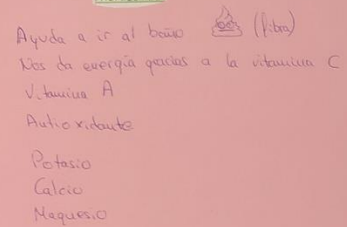 Ayuda a ir al baño (fibra)
Nos da energía gracias a la vitamina C
Vitamina A
Antioxidante
Potasio
Calcio
Magnesio